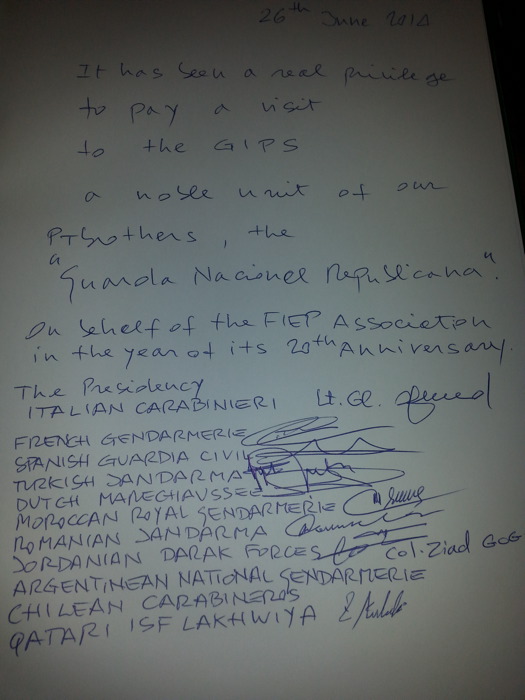 26th June 2014
It has been a real privilege
to pay a visit
to the GIPS
a noble unit of our
PT brothers, the
"Guarda Nacional Republicana".
On behalf of the FIEP Association
in the year of its 20th Anniversary.
The Presidency
ITALIAN CARABINIERI Lt. Gl.
FRENCH GENDARMERIE
SPANISH GUARDIA CIVIL
TURKISH JANDARMA
DUTCH MARECHAUSSEE
MOROCCAN ROYAL GENDARMERIE
ROMANIAN JANDARMA
JORDANIAN DARAK FORCES Col. Ziad
ARGENTINEAN NATIONAL GENDARMERIE
CHILEAN CARABINEROS
QATARI ISF LAKHWIYA